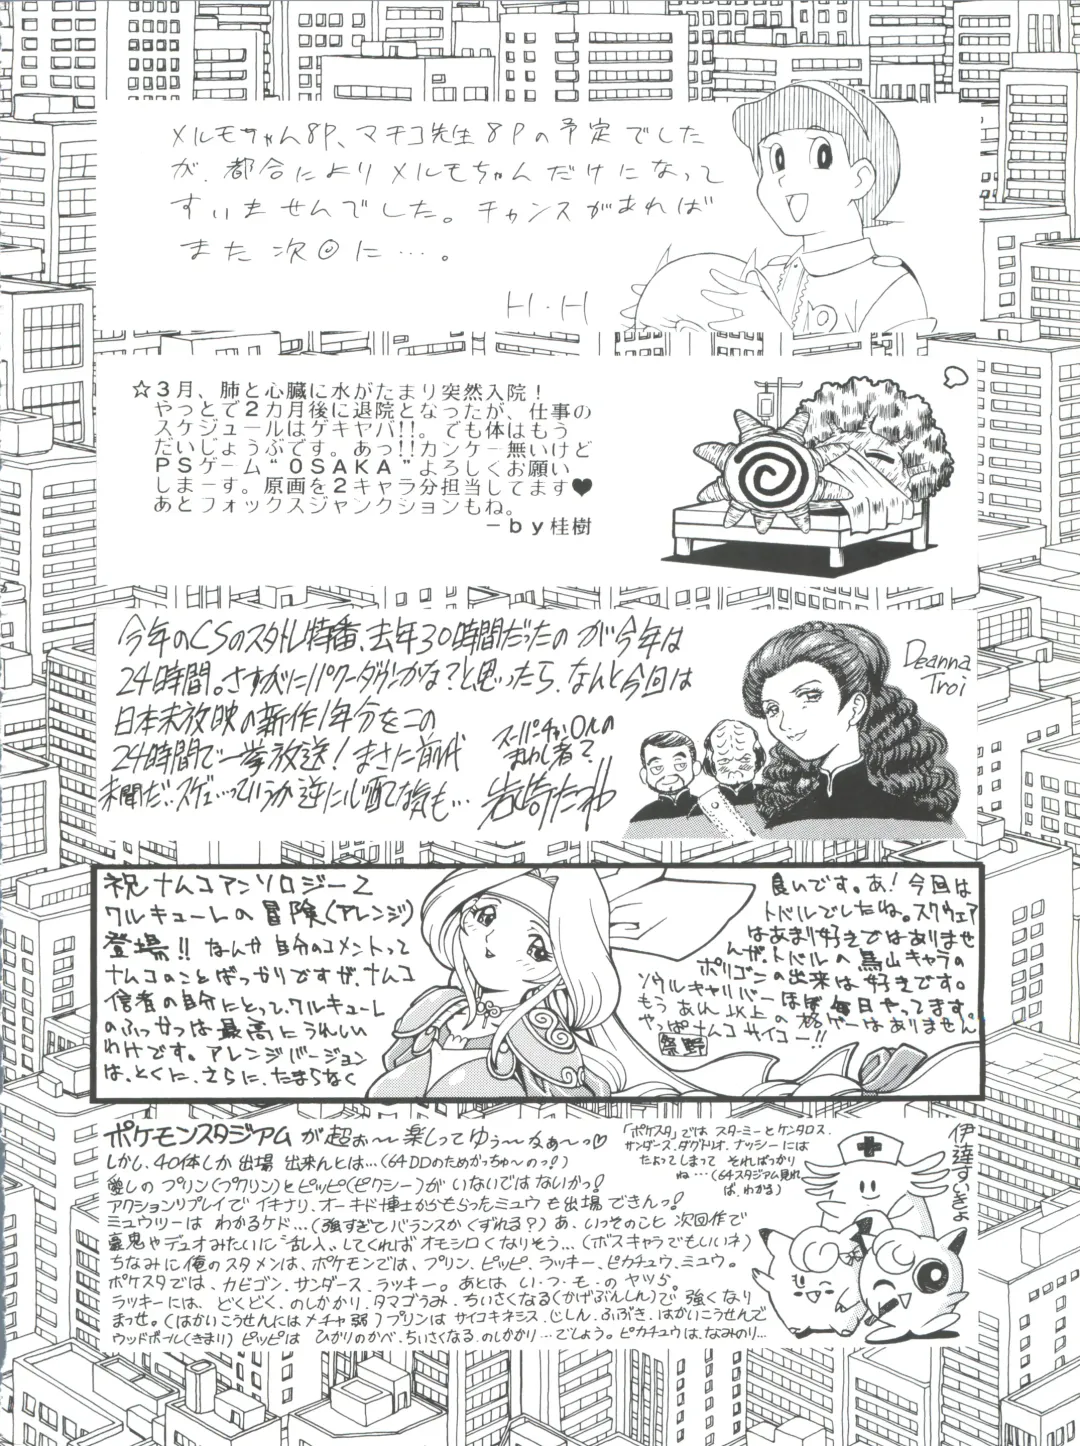 メルモちゃん8P、マチコ先生8Pの予定でした
が、都合によりメルモちゃんだけになって
すいませんでした。チャンスがあれば
また次回に…。
H・H
☆3月、肺と心臓に水がたまり突然入院!
やっとで2カ月後に退院となったが、仕事の
スケジュールはゲキヤバ!!。でも体はもう
だいじょうぶです。あっ!!カンケー無いけど
PSゲーム“OSAKA”よろしくお願い
しまーす。原画を2キャラ分担当してます♥
あとフォックスジャンクションもね。
－by桂樹
今年のCSのスタトレ特番、去年30時間だったのが今年は
24時間。さすがにパワーダウンかな?と思ったら、なんと今回は
日本未放映の新作1年分をこの
24時間で一挙放送!まさに前代
未聞だ…スゲェ…っていうか逆に心配な気も…
スーパーチャンネルの
まわし者?
岩崎たつや
Deanna
Troi
祝ナムコアンソロジー2
ワルキューレの冒険(アレンジ)
登場!! なんか自分のコメントって
ナムコのことばっかりですが、ナムコ
信者の自分にとって、ワルキューレ
のふっかつは最高にうれしい
わけです。アレンジバージョン
は、とくに、さらに、たまらなく
良いです。あ!今回は
トバルでしたね。スクウェア
はあまり好きではありませ
んが、トバルの鳥山キャラの
ポリゴンの出来は好きです。
ソウルキャリバーほぼ毎日やってます。
もうあれ以上の格ゲーはありません
やっぱナムコサイコー!!
祭野
ポケモンスタジアムが超ぉ～楽しってゆぅ～なぁ～っ♡
しかし、40体しか出場出来んとは…(64DDのためかっちゅ～のっ!)
愛しのプリン(プクリン)とピッピ(ピクシー)がいないではないかっ!
アクションリプレイでイキナリ、オーキド博士からもらったミュウも出場できんっ!
ミュウツーはわかるケド…(強すぎてバランスがくずれる?)あ、いっそのこと次回作で
豪鬼やデュオみたいに“乱入”してくればオモシロくなりそう…(ボスキャラでもしいいネ)
ちなみに俺のスタメンは、ポケモンでは、プリン、ピッピ、ラッキー、ピカチュウ、ミュウ。
ポケスタでは、カビゴン、サンダース、ラッキー。あとはい・つ・も・のヤツら。
ラッキーには、どくどく、のしかかり、タマゴうみ、ちいさくなる(かげぶんしん)で強くなり
まっせ。(はかいこうせんにはメチャ弱)プリンはサイコキネシス、じしん、ふぶき、はかいこうせんで
ウッドボール(きまり)ピッピはひかりのかべ、ちいさくなる、のしかかり…でしょう。ピカチュウは、なみのり…
「ポケスタ」ではスターミーとケンタロス、
サンダース、ダグトリオ、ナッシーには
たよってしまってそればっかり
ね…(64スタジアム見れ
ば、わかる)
伊達すいきょ